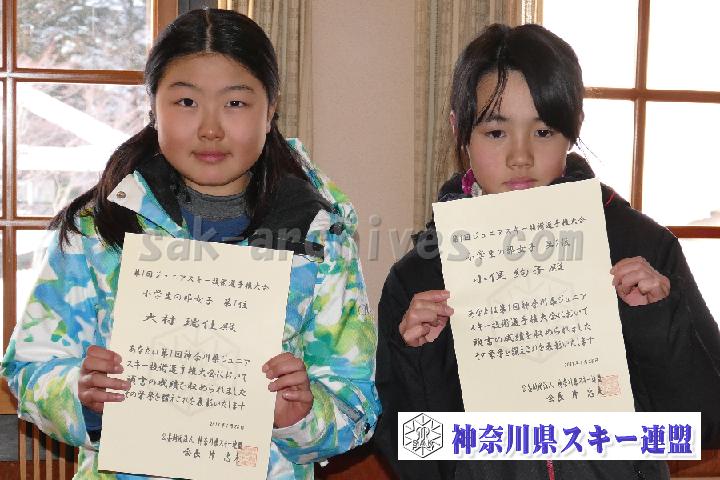 第1回ジュニアスキー技術選手権大会
小学生の部女子 第1位
大村 瑞佳 殿
あなたは第1回神奈川県ジュニア
スキー技術選手権大会において
頭書の成績を収められました
その栄誉を讃えこれを表彰いたします
公益財団法人 神奈川県スキー連盟
会長 片 忠夫
第1回ジュニアスキー技術選手権大会
小学生の部女子 第3位
小俣 殿
あなたは第1回神奈川県ジュニア
スキー技術選手権大会において
頭書の成績を収められました
その栄誉を讃えこれを表彰いたします
公益財団法人 神奈川県スキー連盟
会長 片 忠夫
sak-archives.com
神奈川県スキー連盟